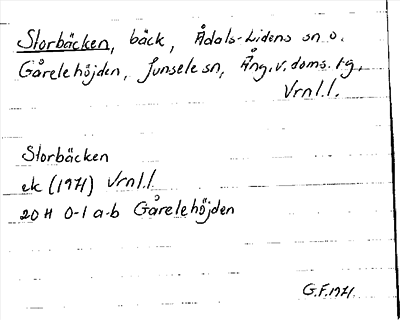 Storbäcken, bäck, Ådals-Lidens sn o.
Gårelehöjden, Junsele sn, Ång. v. doms. tg,
Vrnl.l.
Storbäcken
ek (1971) Vrnl.l
20 H 0-1 a-b Gårelehöjden
G.F. 1971.